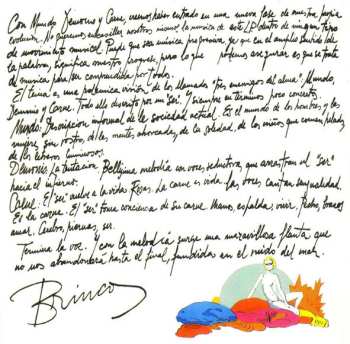 Con Mundo, Demonio y Carne, creemos haber entrado en una nueva fase de nuestra propia
evolución. No queremos encasillar nosotros mismos la música de este LP dentro de ningún tipo
de movimiento musical. Puede que sea música progresiva ya que en el amplio sentido de
la palabra, significa nuestro progreso, pero lo que podemos asegurar es que se trata
de música para ser comprendida por todos.
El tema es una polémica visión de los llamados "tres enemigos del alma": Mundo,
Demonio y Carne. Todo ello descrito por un "ser", siempre en términos poco concretos.
Mundo: Descripción informal de la sociedad actual. Es el mundo de los hombres, y las
mujeres sin rostro, de las mentes aborcadas, de la soledad, de los niños que comen
de los letreros luminosos.
Demonio: La tentación Bellísima melodía con voces seductoras, que arrastran al "ser"
hacia el infierno.
Carne: El "ser" vuelve a la vida. Rosas. La carne es vida. Las voces cantan sensualidad.
Es la carne. El "ser" toma conciencia de su carne. Manos, espaldas, vivir. Pechos, brazos
amar. Cerebro, piernas, ser.
Termina la voz. Y con la melodía surge una maravillosa flauta que
no nos abandonará hasta el final, fundidos en el ruido del mar.
Brincos